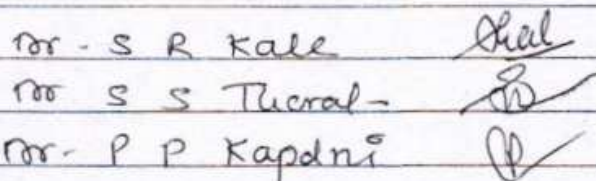 Mr - S R Kale
Mr S S Thorat -
Mr - P P Kapdni